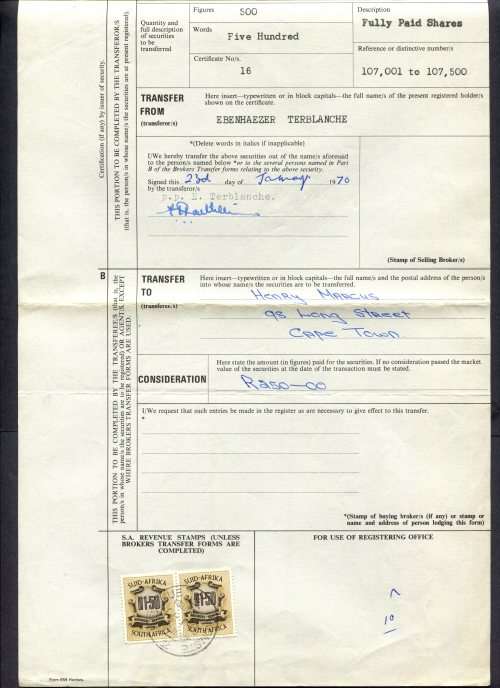 Figures
500
Description
Fully Paid Shares
Quantity and
full description
of securities
to be
transferred
Words
Five Hundred
Reference or distinctive number/s
Certificate No/s.
16
107,001 to 107,500
Certification (if any) by issuer of security.
THIS PORTION TO BE COMPLETED BY THE TRANSFEROR/S
(that is, the person/s in whose name/s the securities are at present registered)
TRANSFER
FROM
(transferor/s)
Here insert—typewritten or in block capitals—the full name/s of the present registered holder/s
shown on the certificate.
EBENHAEZER TERBLANCHE
*(Delete words in italics if inapplicable)
I/We hereby transfer the above securities out of the name/s aforesaid
to the person/s named below *or to the several persons named in Part
B of the Brokers Transfer forms relating to the above security.
Signed this 23rd day of January 1970
by the transferor/s
p.p. E. Terblanche.
(Stamp of Selling Broker/s)
B
THIS PORTION TO BE COMPLETED BY THE TRANSFEREE/S (that is, the
person/s in whose name/s the securities are to be registered) OR AGENT/S, EXCEPT
WHERE BROKERS TRANSFER FORMS ARE USED.
TRANSFER
TO
(transferee/s)
Here insert—typewritten or in block capitals—the full name/s and the postal address of the person/s
into whose name/s the securities are to be transferred.
Henry Marcus
98 Long Street
Cape Town
CONSIDERATION
Here state the amount (in figures) paid for the securities. If no consideration passed the market
value of the securities at the date of the transaction must be stated.
I/We request that such entries be made in the register as are necessary to give effect to this transfer.
*
*(Stamp of buying broker/s (if any) or stamp or
name and address of person lodging this form)
S.A. REVENUE STAMPS (UNLESS
BROKERS TRANSFER FORMS ARE
COMPLETED)
FOR USE OF REGISTERING OFFICE
SUID-AFRIKA
SUID-AFRIKA
R1·50
R1·50
SOUTH AFRICA
SOUTH AFRICA
10